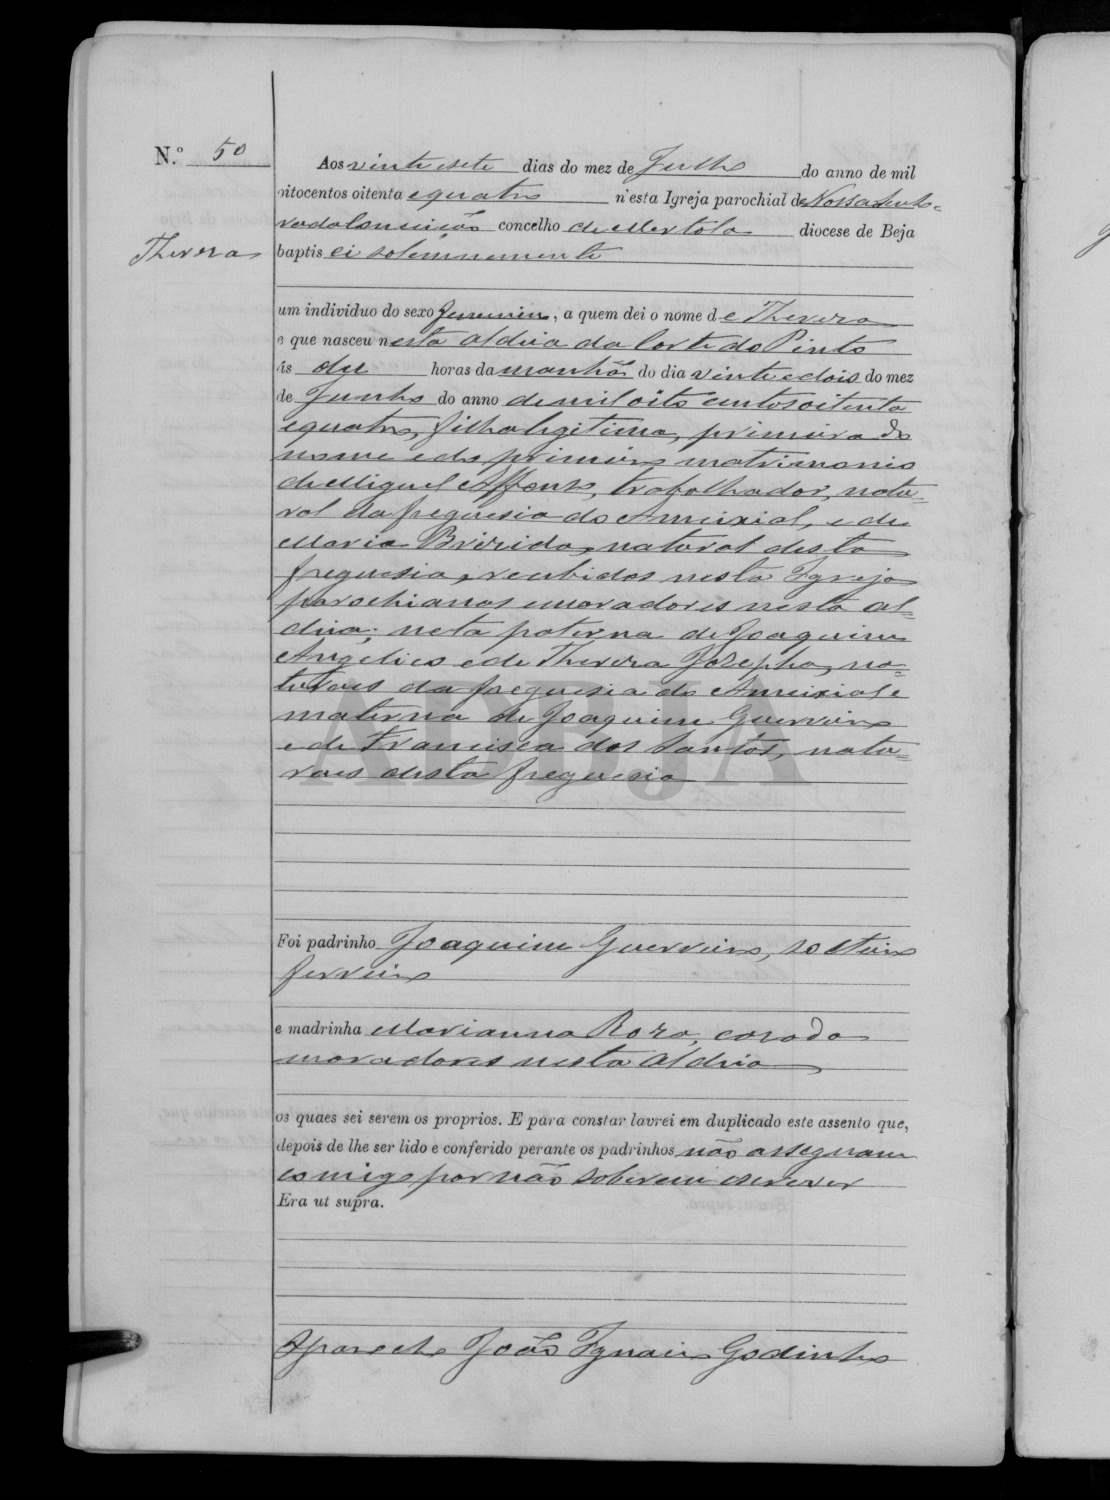 N.º 50
Aos vinte e sete dias do mez de Julho do anno de mil
oitocentos oitenta e quatro n'esta Igreja parochial de Nossa Senho=
ra da Conceição concelho de Mertola diocese de Beja
Thereza
baptisei solemnemente
um individuo do sexo femenino, a quem dei o nome de Thereza
e que nasceu nesta aldeia da Corte do Pinto
ás dez horas da manhã do dia vinte e dois do mez
de Junho do anno de mil oito centos oitenta
e quatro, filha legitima, primeira do
nome e do primeiro matrimonio
de Miguel Affonso, trabalhador, natu=
ral da freguesia do Ameixial, e de
Maria Brizida, natural desta
freguesia, recebidos nesta Igreja
parochianos e moradores nesta al=
deia; neta paterna de Joaquim
Angelico e de Thereza Josepha, na=
turaes da freguesia do Ameixial e
materna de Joaquim Guerreiro
e de Francisca dos Santos, natu=
raes desta freguesia
ADBJA
Foi padrinho Joaquim Guerreiro, solteiro
ferreiro
e madrinha Marianna Roza, casada
moradores nesta aldeia
os quaes sei serem os proprios. E para constar lavrei em duplicado este assento que,
depois de lhe ser lido e conferido perante os padrinhos não assignam
comigo por não saberem escrever
Era ut supra.
O parocho João Ignacio Godinho